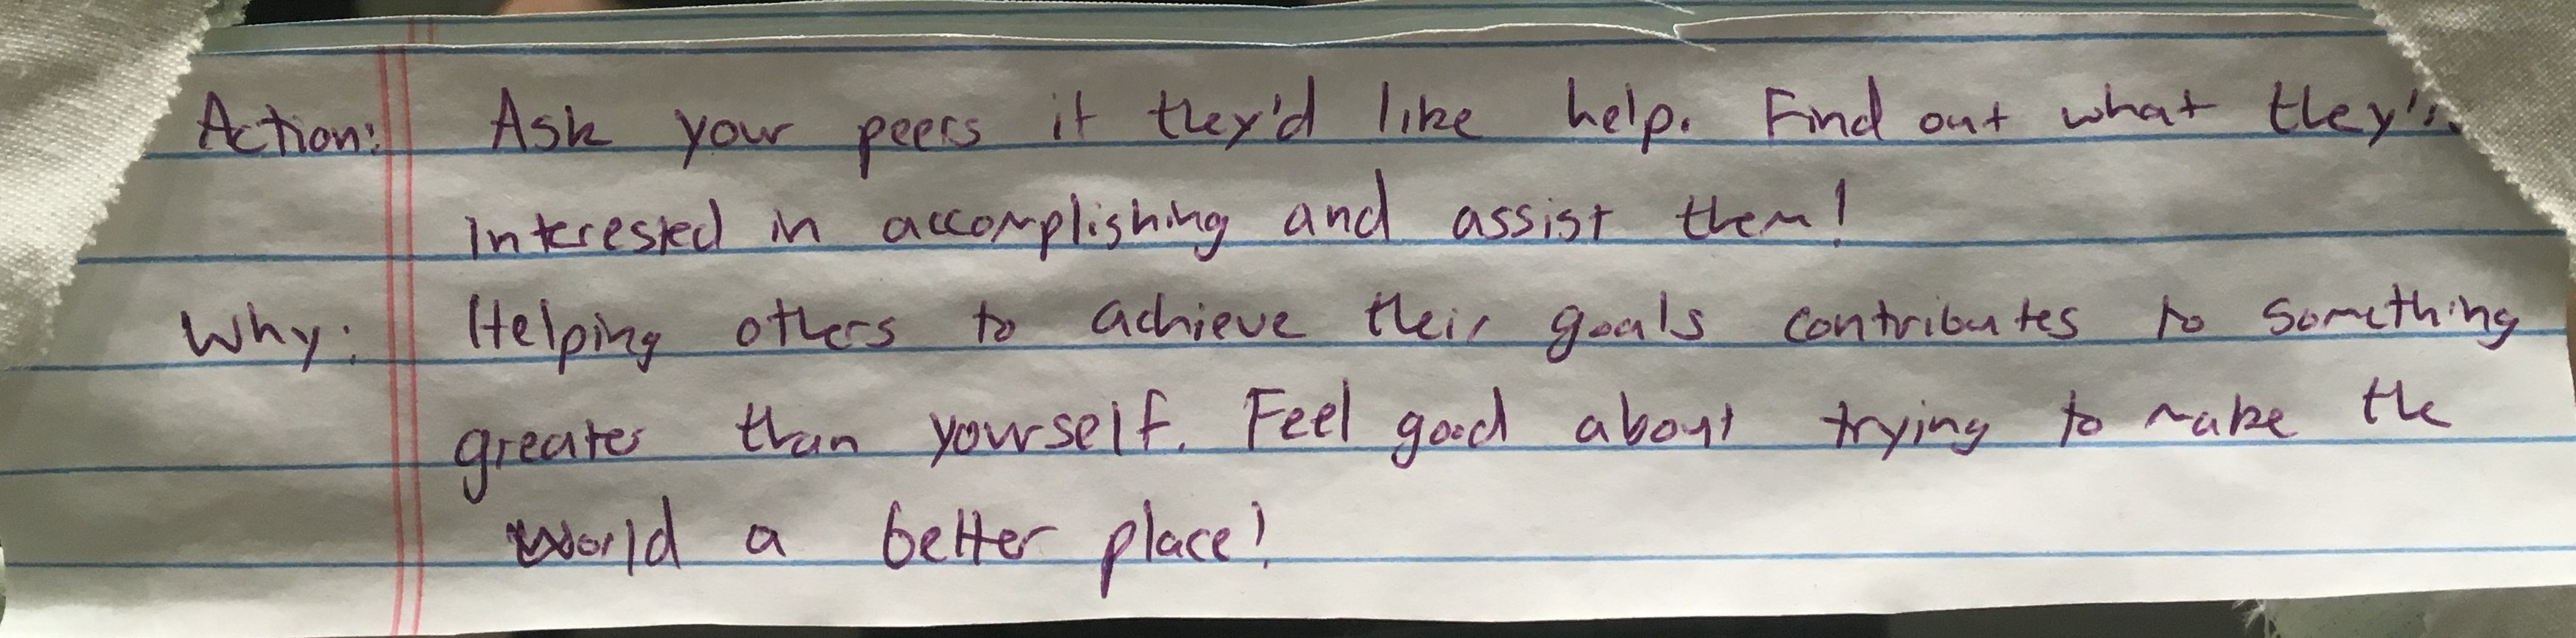 Action: Ask your peers if they'd like help. Find out what
interested in accomplishing and assist them!
Why: Helping others to achieve their goals contributes to something
greater than yourself. Feel good about trying to make the
world a better place!